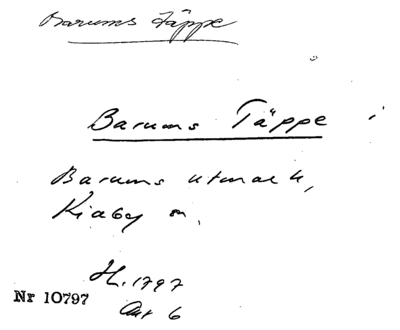 Barums Täppe
Barums Täppe i
Barums utmark,
Kiaby sn.
H. 1797
Akt 6
Nr 10797